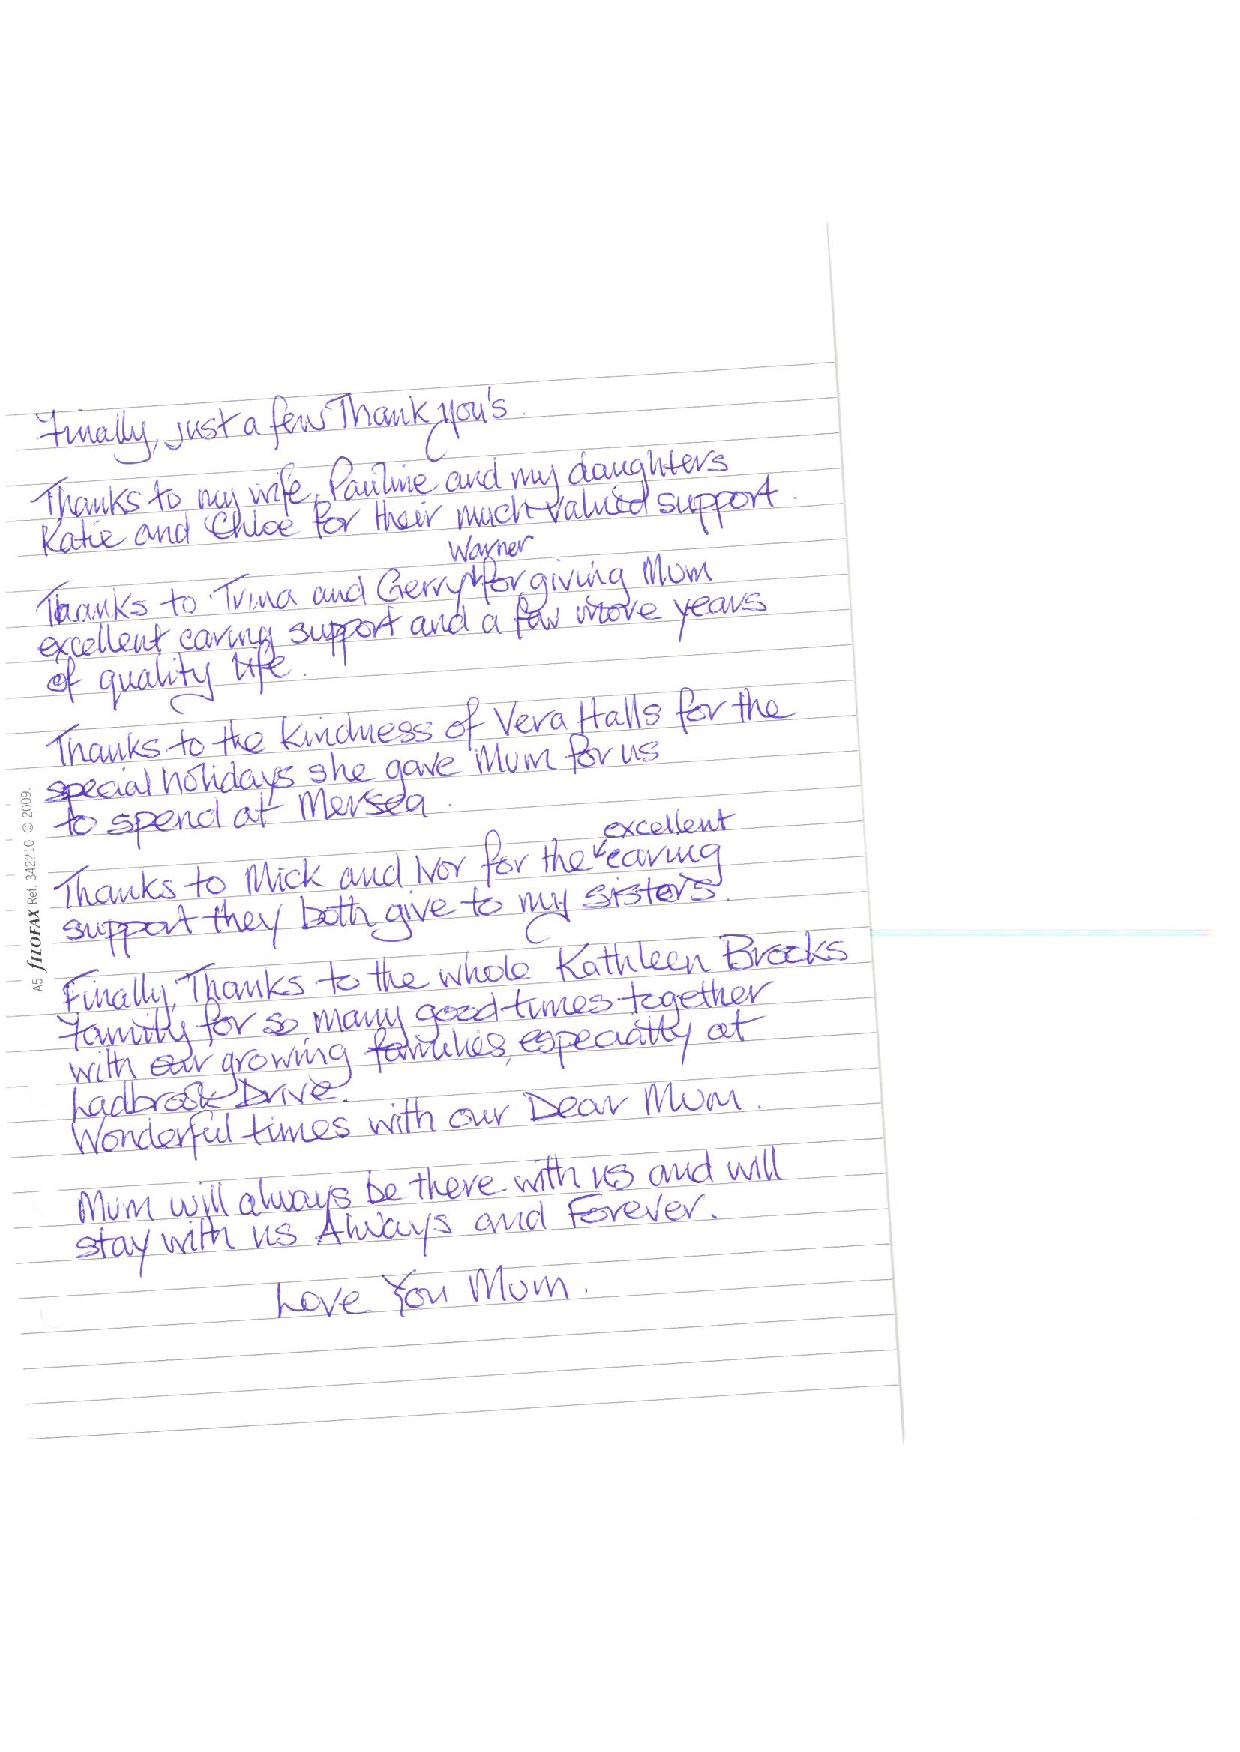 Finally, just a few Thank you's.
Thanks to my wife, Pauline and my daughters
Katie and Chloe for their much valued support.
Warner
Thanks to Trina and Gerry for giving Mum
excellent caring support and a few more years
of quality life.
Thanks to the kindness of Vera Halls for the
special holidays she gave Mum for us
to spend at Mersea.
excellent
Thanks to Mick and Ivor for the caring
support they both give to my sisters.
Finally, Thanks to the whole Kathleen Brooks
Family for so many good times together
with our growing families, especially at
Ladbrook Drive.
Wonderful times with our Dear Mum.
Mum will always be there with us and will
stay with us Always and Forever.
Love You Mum.
A5 FILOFAX Ref. 342210 © 2009.